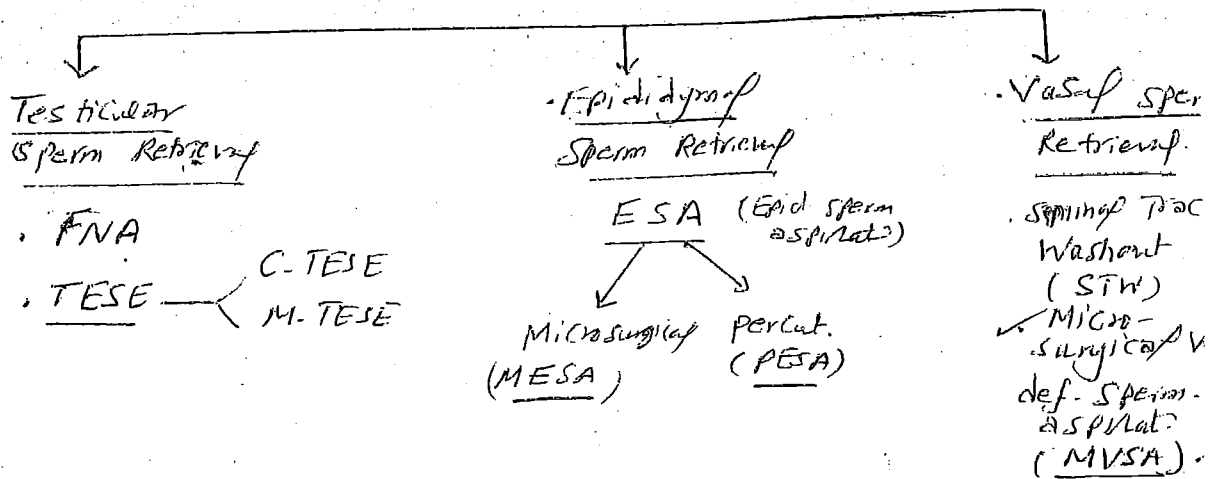 Testicular
Sperm Retrieval
. FNA
. TESE
C-TESE
M-TESE
. Epididymal
Sperm Retrieval
ESA (Epid sperm
aspirat?)
Microsurgical
(MESA)
percut.
(PESA)
. Vasal sper
Retrieval.
. Seminal Trac
Washout
(STW)
✓. Micro-
surgical V
def. sperm.
aspirat?
(MVSA).